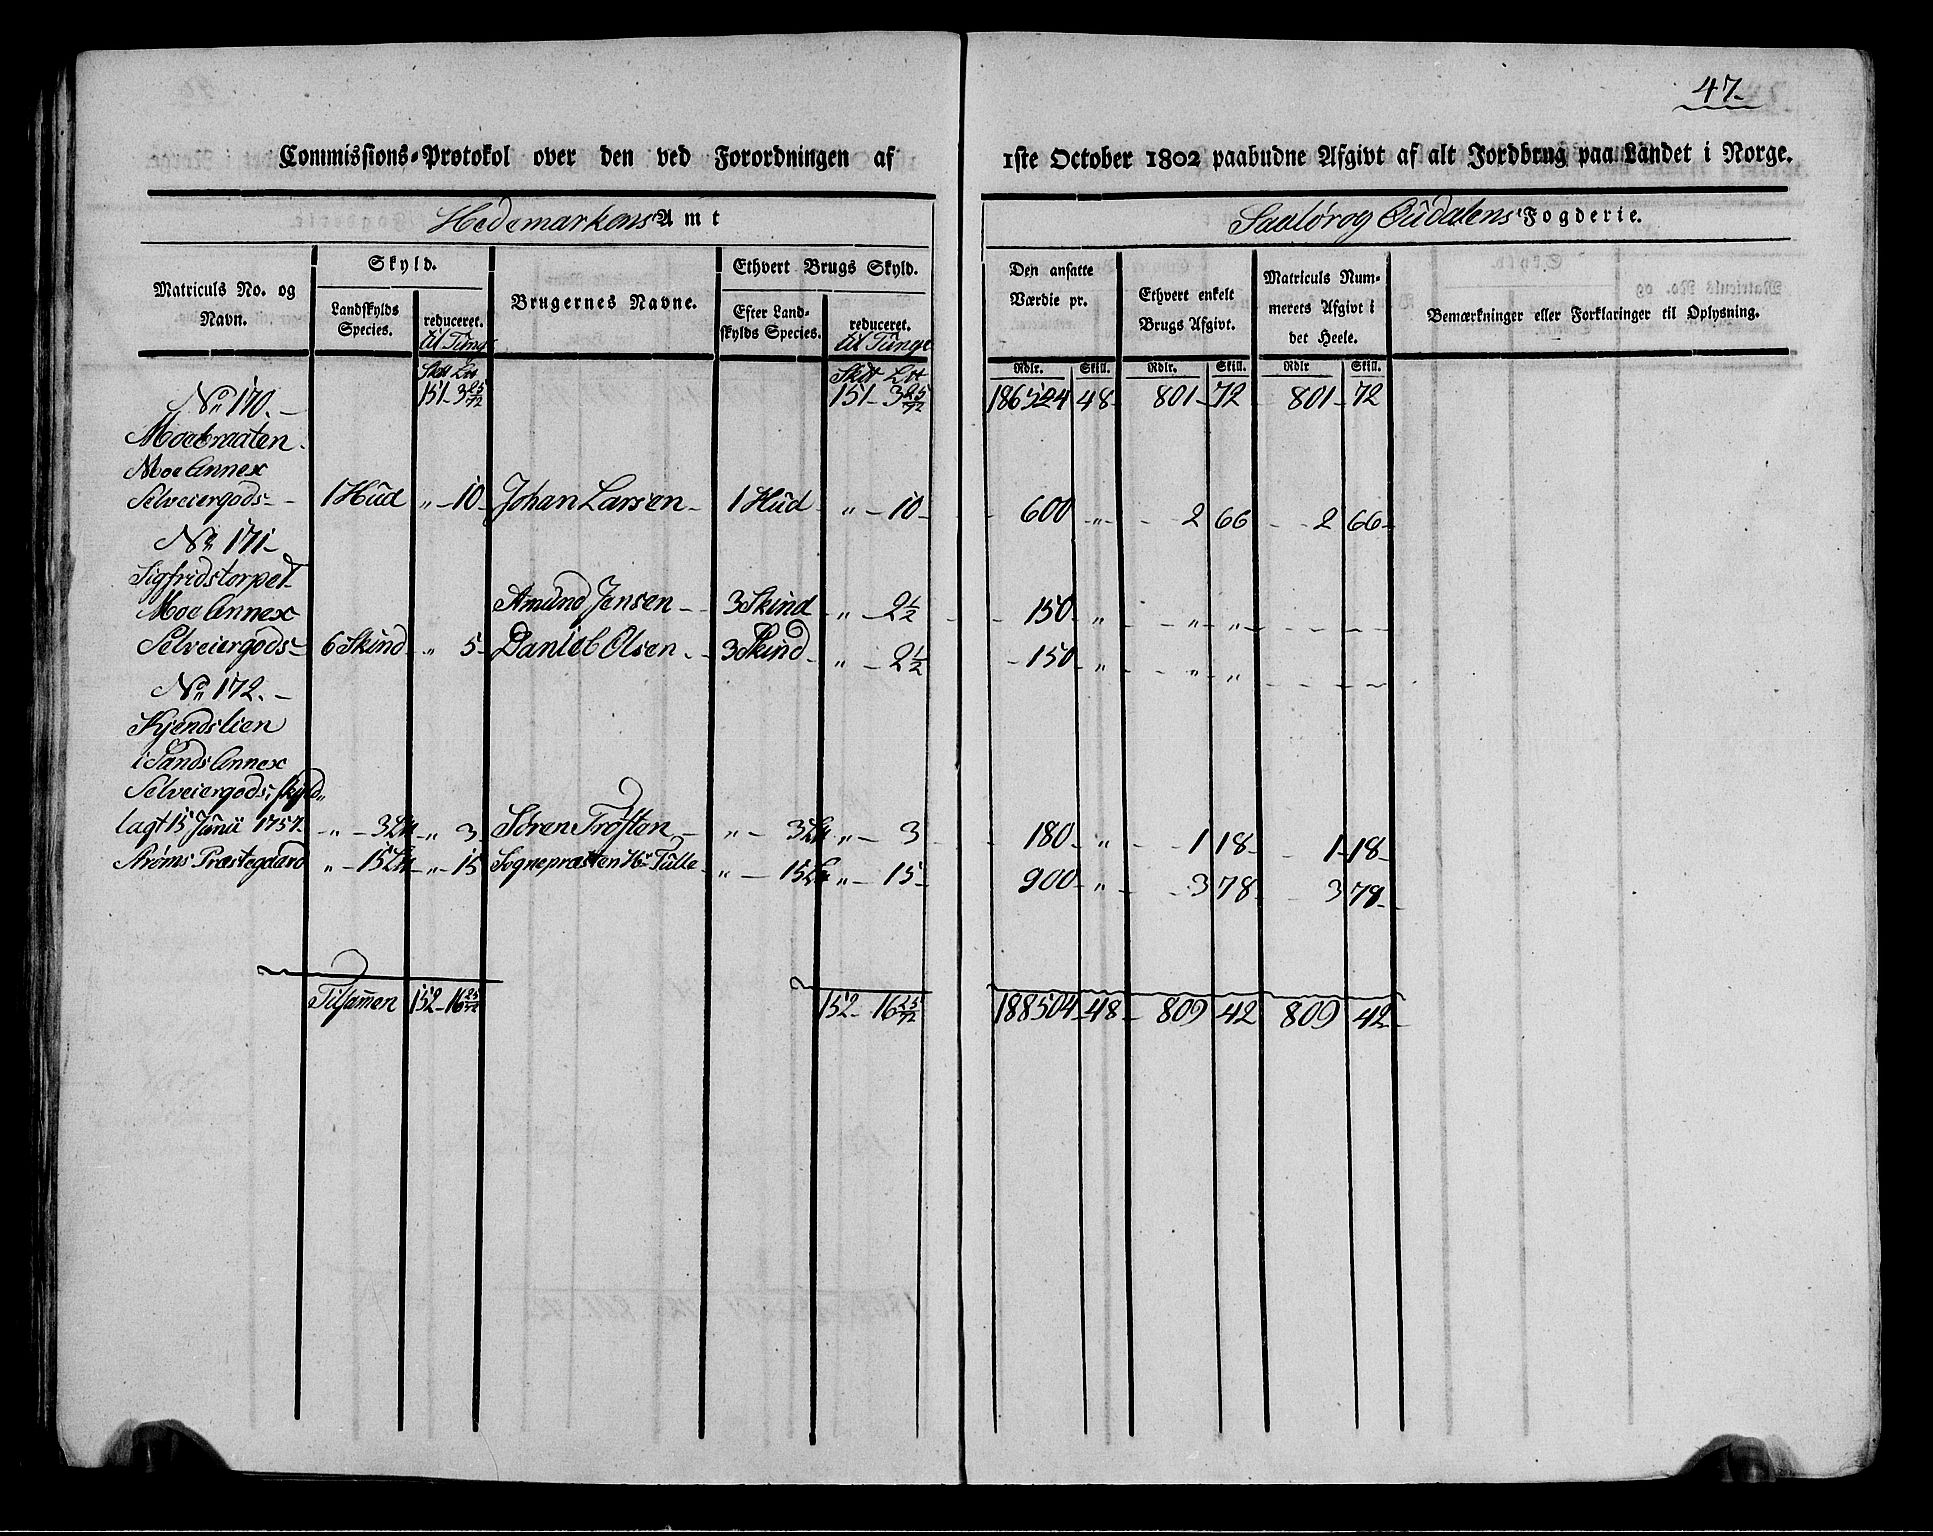 47.
Commissions-Protokol over den ved Forordningen af 1ste October 1802 paabudne Afgivt af alt Jordbrug paa Landet i Norge.
Hedemarkens Amt
Soelör og Oudalens Fogderie.
Matriculs No. og Navn.
Skyld.
Landskylds Species.
reduceret. til Tunge
Brugernes Navne.
Ethvert Brugs Skyld.
Efter Landskylds Species.
reduceret. til Tunge
Den ansatte Værdie pr.
Ethvert enkelt Brugs Afgivt.
Matriculs Nummerets Afgivt i det Heele.
Bemærkninger eller Forklaringer til Oplysning.
Skt Lt Skt Lt Rdlr. Skill. Rdlr. Skill. Rdlr Skill.
151 - 3 25/72 151 - 3 25/72 186524 48 801 72 801 72
No 170.
Moebraaten
Moe Annex
Selveiergods 1 Hud " 10 Johan Larsen 1 Hud " 10 600 " 2 66 2 66
No 171
Sigfridstorpet
Moe Annex Amund Jensen 3 Skind " 2 1/2 150 " " "
Selveiergods 6 Skind " 5 Daniel Olsen 3 Skind " 2 1/2 150 " " "
No 172.
Kjendslien
i Sands Annex
Selveiergods, skyld
lagt 15 Junii 1757 " 3 Lt " 3 Sören Tröften " 3 Lt " 3 180 " 1 18 1 18
Ströms Præstegaard " 15 Lt " 15 Sognepræsten Hr Tulle " 15 Lt " 15 900 " 3 78 3 78
Tilsamen 152 - 16 25/72 152 - 16 25/72 188504 48 809 42 809 42